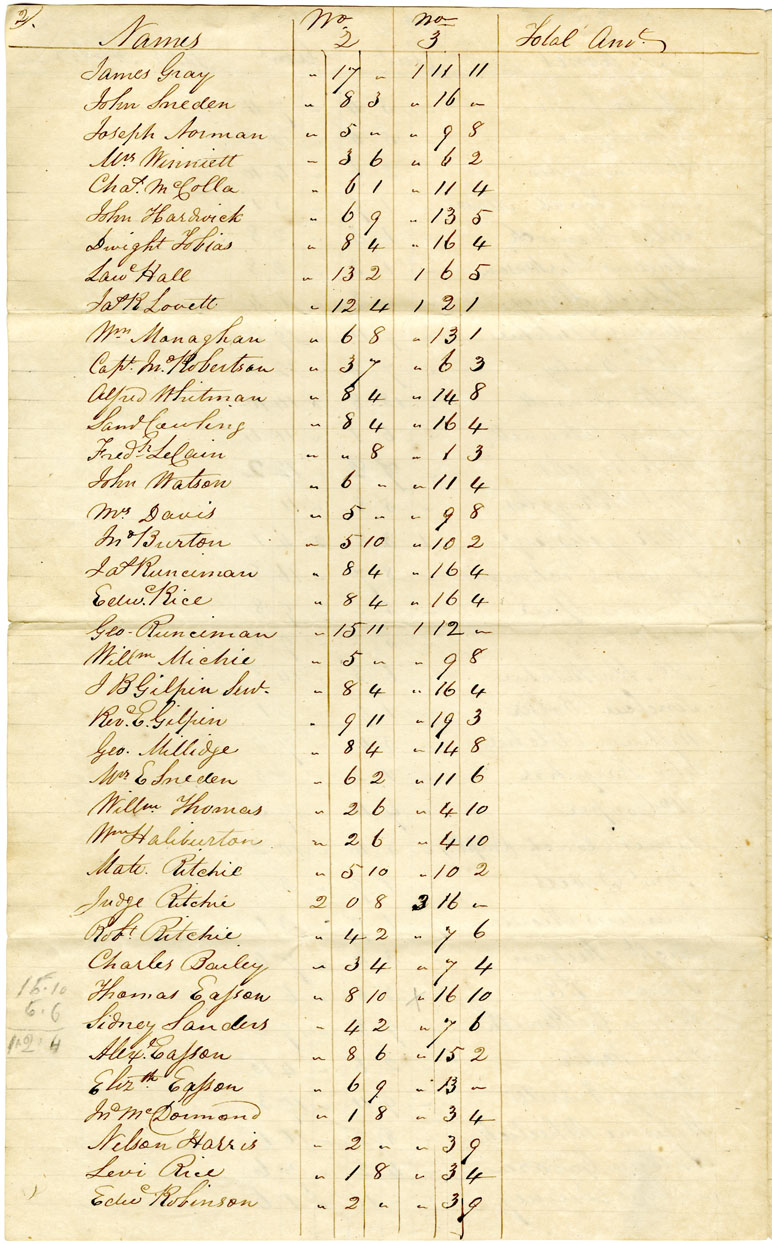 2.
Names No 2 No 3 Total Amt.
James Gray " 17 " 1 11 11
John Sneden " 8 3 " 16 "
Joseph Norman " 5 " " 9 8
Mrs Winniett " 3 6 " 6 2
Chas. McColla " 6 1 " 11 4
John Hardwick " 6 9 " 13 5
Dwight Tobias " 8 4 " 16 4
Lawc Hall " 13 2 1 6 5
Jas R Lovett " 12 4 1 2 1
Wm Monaghan " 6 8 " 13 1
Capt. Jno Robertson " 3 7 " 6 3
Alfred Whitman " 8 4 " 14 8
Saml Cowling " 8 4 " 16 4
Fredk LeCain " " 8 " 1 3
John Watson " 6 " " 11 4
Mrs Davis " 5 " " 9 8
Jno Burton " 5 10 " 10 2
Jas Runciman " 8 4 " 16 4
Edwd Rice " 8 4 " 16 4
Geo. Runciman " 15 11 1 12 "
Willm Michie " 5 " " 9 8
J B Gilpin Junr. " 8 4 " 16 4
Revd. E. Gilpin " 9 11 " 19 3
Geo. Millidge " 8 4 " 14 8
Mrs E Sneden " 6 2 " 11 6
Willm Thomas " 2 6 " 4 10
Wm Haliburton " 2 6 " 4 10
Mattw. Ritchie " 5 10 " 10 2
Judge Ritchie 2 0 8 3 16 "
Robt. Ritchie " 4 2 " 7 6
Charles Bailey " 3 4 " 7 4
15.10
Thomas Eaſson " 8 10 " 16 10
6.6
Sidney Sanders " 4 2 " 7 6
1.2.4
Alexr. Eaſson " 8 6 " 15 2
Elizth Eaſson " 6 9 " 13 "
Jno McDormond " 1 8 " 3 4
Nelson Harris " 2 " " 3 9
Levi Rice " 1 8 " 3 4
Edwd Robinson " 2 " " 3 9